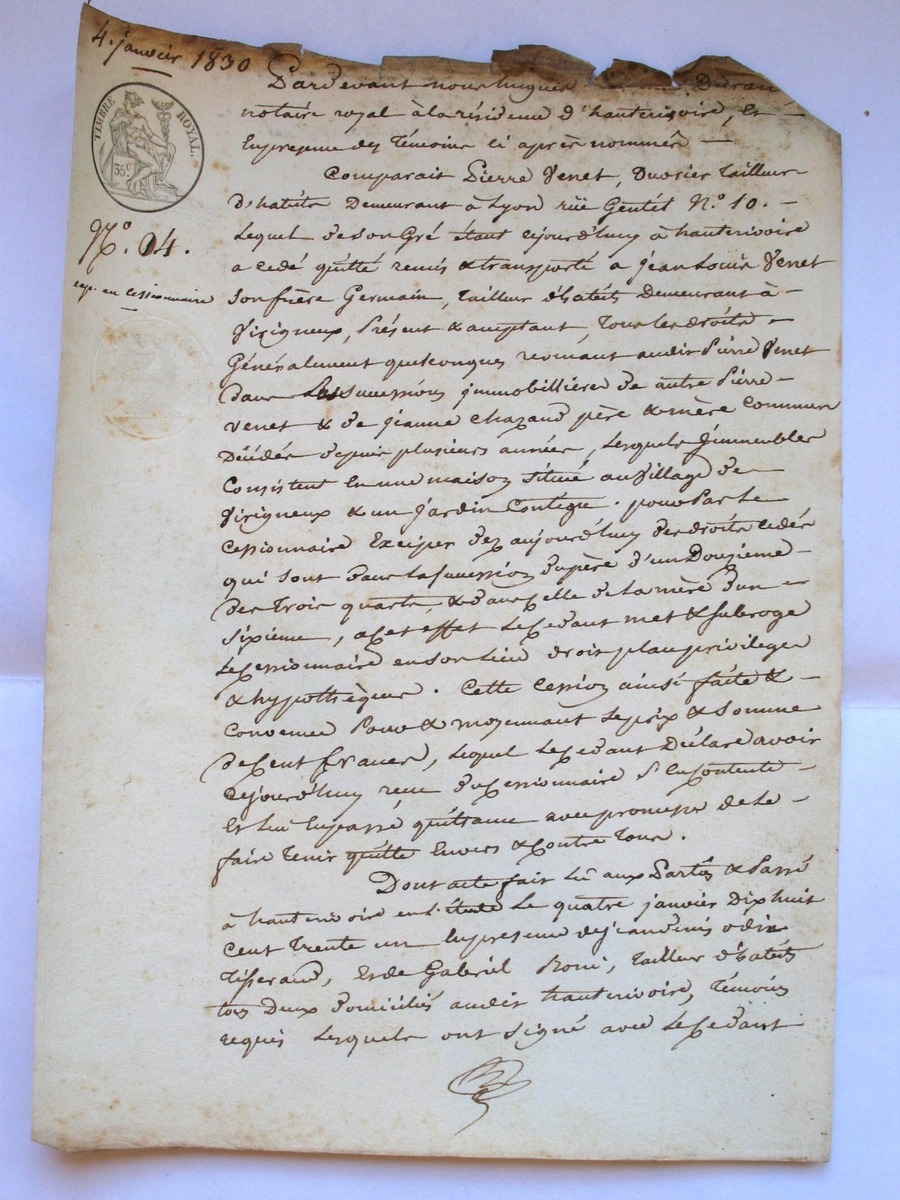 4. janvier 1830
TIMBRE ROYAL.
35c
Pardevant nous hugues Duran
notaire royal à la résidence d'hauterivoire, Et
En presence des Témoins ci après nommés
N.o 04.
exp. au cessionnaire
Comparait Pierre Venet, Ouvrier Tailleur
d'habits Demeurant à Lyon rüe Gentil N.o 10.
Lequel de son Gré étant cejourd'huy à hauterivoire
a cedé quitté remis & transporté a jean Louis Venet
son frère Germain, Tailleur d'habits Demeurant à
Virigneux, Présent & acceptant, Tous les droits
Généralement quelconques revenant audit Pierre Venet
dans Les successions jmmobillière de autre Pierre
Venet & de jeanne Chazaud père & mère Communs
Décédés depuis plusieurs année, Lesquels jmmeubles
Consistent En une maison située au village de
Virigneux & un jardin Contigue. pour Par Le
Cessionnaire Exciper dez aujourd'huy des droits cedés
qui sont dans la succession du père d'un Dousieme
des Trois quarts, & dans Celle de La mère d'un
Sixieme, a cet effet Le Cedant met & subroge
Le Cessionnaire en son Lieu droit place privilege
& hypothèques. Cette Cession ainsi faite &
Convenue Pour & moyennant Le prix & Somme
de Cent francs, Lequel Le Cedant Déclare avoir
Cejourd'huy reçu du Cessionnaire s'En Contente
Et Lui En passé quittance avec promesse de Le
faire Tenir quitte Envers & Contre Tous.
Dont acte fait Lû aux Parties & Passé
à hauterivoire en L'étude Le quatre janvier Dix huit
Cent Trente un En presence de jean denis odin
Tisserand, Et de Gabriel Roni, Tailleur d'habits
tous Deux domiciliés audit hauterivoire, Témoins
requis Lesquels ont signé avec Le Cedant